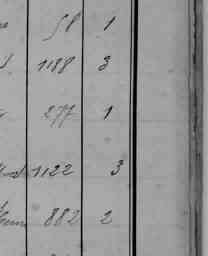 58 1
1188 3
277 1
1122 3
882 2